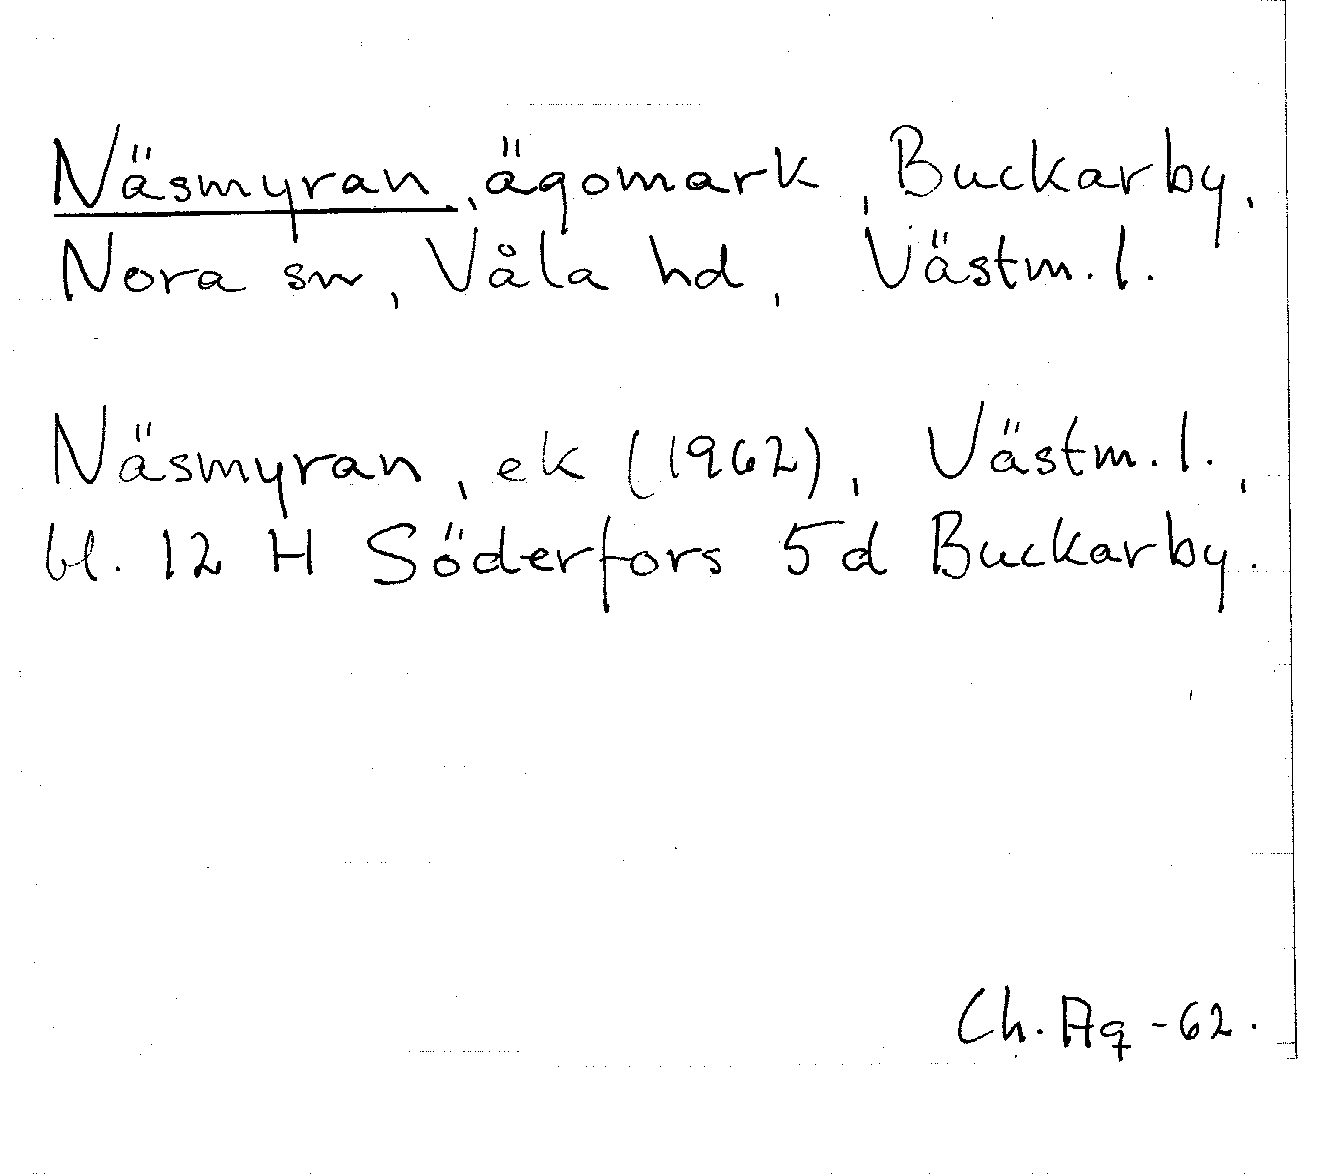 Näsmyran, ägomark, Buckarby,
Nora sn, Våla hd, Västm. l.
Näsmyran, ek (1962), Västm. l.,
bl. 12 H Söderfors 5d Buckarby.
Ch. Ag -62.